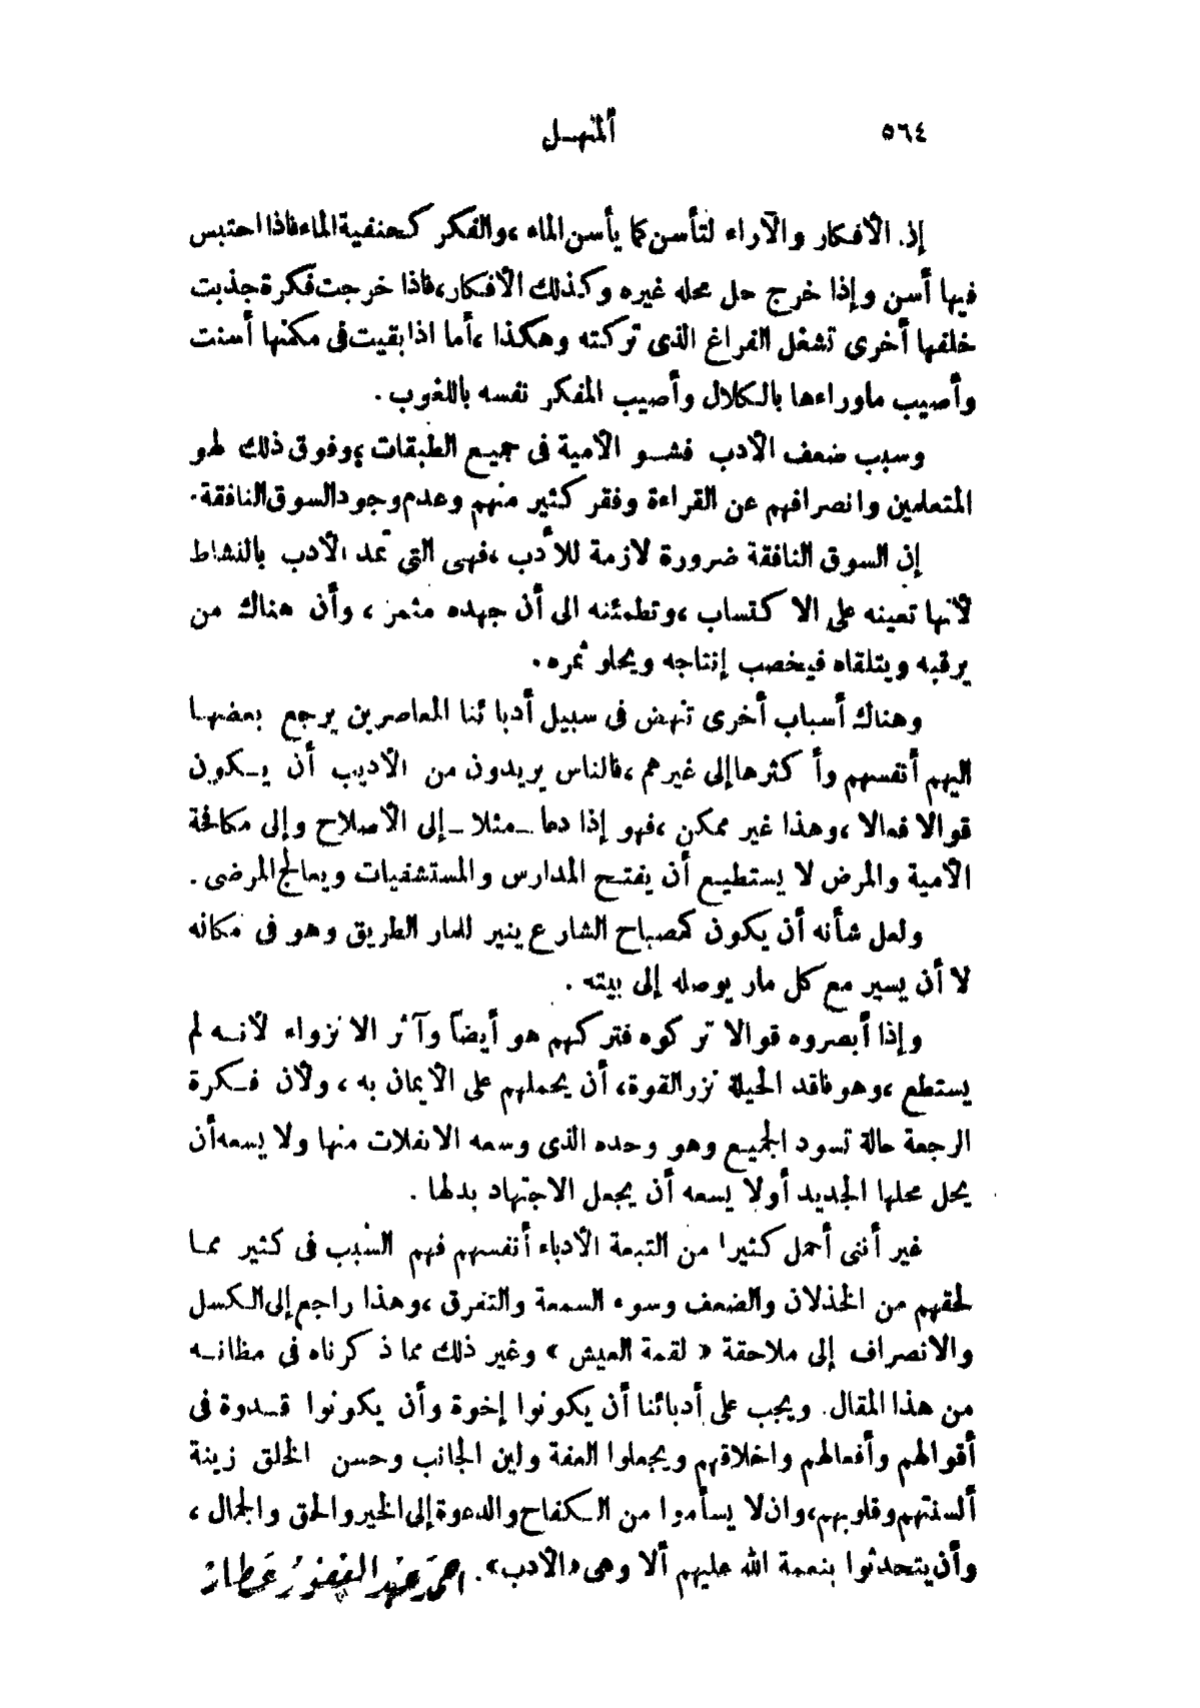 ٥٦٤ ألمنهـل
إذ الأفكار والآراء لتأسن كما يأسن الماء ،والفكر كحنفية الماء فاذا احتبس
فيها أسن وإذا خرج حل محله غيره وكذلك الأفكار،فاذا خرجت فكرة جذبت
خلفها أخرى تشغل الفراغ الذى تركته وهكذا ،أما اذا بقيت فى مكمنها أسنت
وأصيب ماوراءها بالكلال وأصيب المفكر نفسه باللغوب .
وسبب ضعف الأدب فشـو الأمية فى جميع الطبقات ،وفوق ذلك لهو
المتعلمين وانصرافهم عن القراءة وفقر كثير منهم وعدم وجود السوق النافقة.
إن السوق النافقة ضرورة لازمة للأدب ،فهى التى تمد الأدب بالنشاط
لأنها تعينه على الاكتساب ،وتطمئنه الى أن جهده مثمر ، وأن هناك من
يرقبه ويتلقاه فيخصب إنتاجه ويحلو ثمره.
وهناك أسباب أخرى تنهض فى سبيل أدبائنا المعاصرين يرجع بعضهـا
اليهم أنفسهم وأكثرها إلى غيرهم ،فالناس يريدون من الأديب أن يـكون
قوالا فعالا ،وهذا غير ممكن ،فهو إذا دعا ـ مثلا ـ إلى الأصلاح وإلى مكافحة
الأمية والمرض لا يستطيع أن يفتـح المدارس والمستشفيات ويعالج المرضى .
ولعل شأنه أن يكون كمصباح الشارع ينير للمار الطريق وهو فى مكانه
لا أن يسير مع كل مار يوصله إلى بيته .
وإذا أبصروه قوالا تركوه فتركهم هو أيضاً وآثر الانزواء لأنـه لم
يستطع ،وهو فاقد الحيلة نزر القوة، أن يحملهم على الأيمان به ، ولأن فـكرة
الرجعة حالة تسود الجميع وهو وحده الذى وسعه الانفلات منها ولا يسعه أن
يحل محلها الجديد أولا يسعه أن يجعل الاجتهاد بدلها .
غير أننى أحمل كثيرا من التبعة الأدباء أنفسهم فهم السبب فى كثير ممـا
لحقهم من الخذلان والضعف وسوء السمعة والتفرق ،وهذا راجع إلى الكسل
والانصراف إلى ملاحقة « لقمة العيش » وغير ذلك مما ذكرناه فى مظانـه
من هذا المقال. ويجب على أدبائنا أن يكونوا إخوة وأن يكونوا قـدوة فى
أقوالهم وأفعالهم واخلاقهم ويجعلوا العفة ولين الجانب وحسن الخلق زينة
ألسنتهم وقلوبهم،وان لا يسأموا من الكفاح والدعوة إلى الخير والحق والجمال ،
وأن يتحدثوا بنعمة الله عليهم ألا وهى «الأدب». احمد عبد الغفور عطار